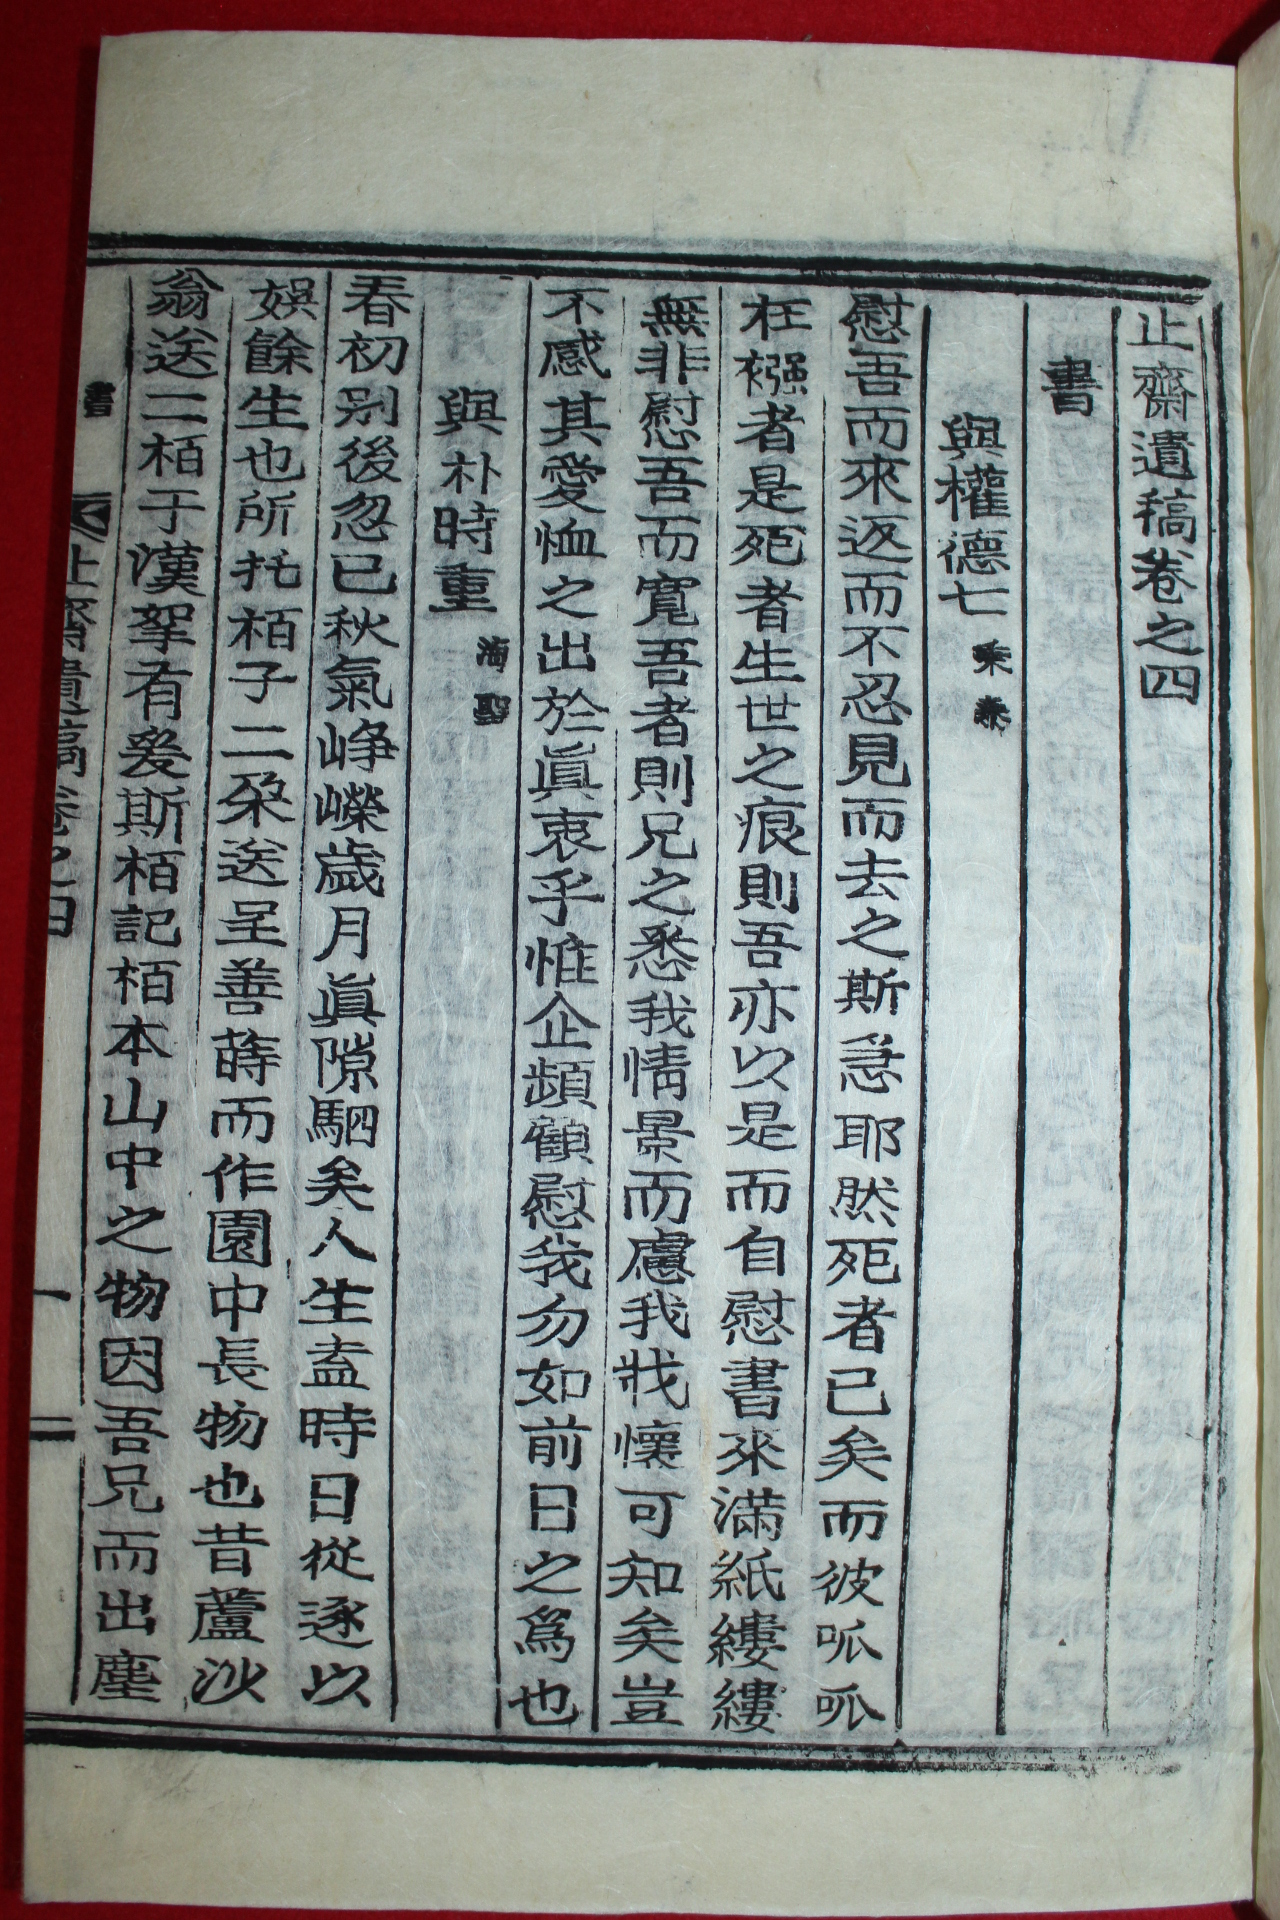 止齋遺稿卷之四
書
與權德七 秉泰
慰吾而來返而不忍見而去之斯急耶然死者已矣而彼呱呱
在襁者是死者生世之痕則吾亦以是而自慰書來滿紙縷縷
無非慰吾而寬吾者則兄之悉我情景而慮我狀懷可知矣豈
不感其愛恤之出於眞衷乎惟企頻顧慰我勿如前日之爲也
與朴時重 海聖
春初別後忽已秋氣崢嶸歲月眞隙駟矣人生盍時日從逐以
娛餘生也所托栢子二朶送呈善蒔而作園中長物也昔蘆沙
翁送二栢于漢挐有爰斯栢記栢本山中之物因吾兄而出塵
書 止齋遺稿卷之四 一